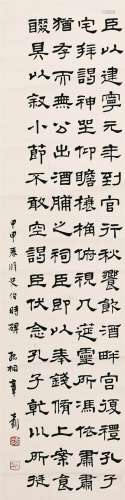 臣以建寧元年到官行秋饗飲酒畔宮畢復禮孔子
宅拜謁神坐仰瞻榱桷俯視几筵靈所馮依肅肅
猶存而無公出酒脯之祠臣即自以奉錢脩上案食
醊具以叙小節不敢空謁臣伏念孔子
甲申